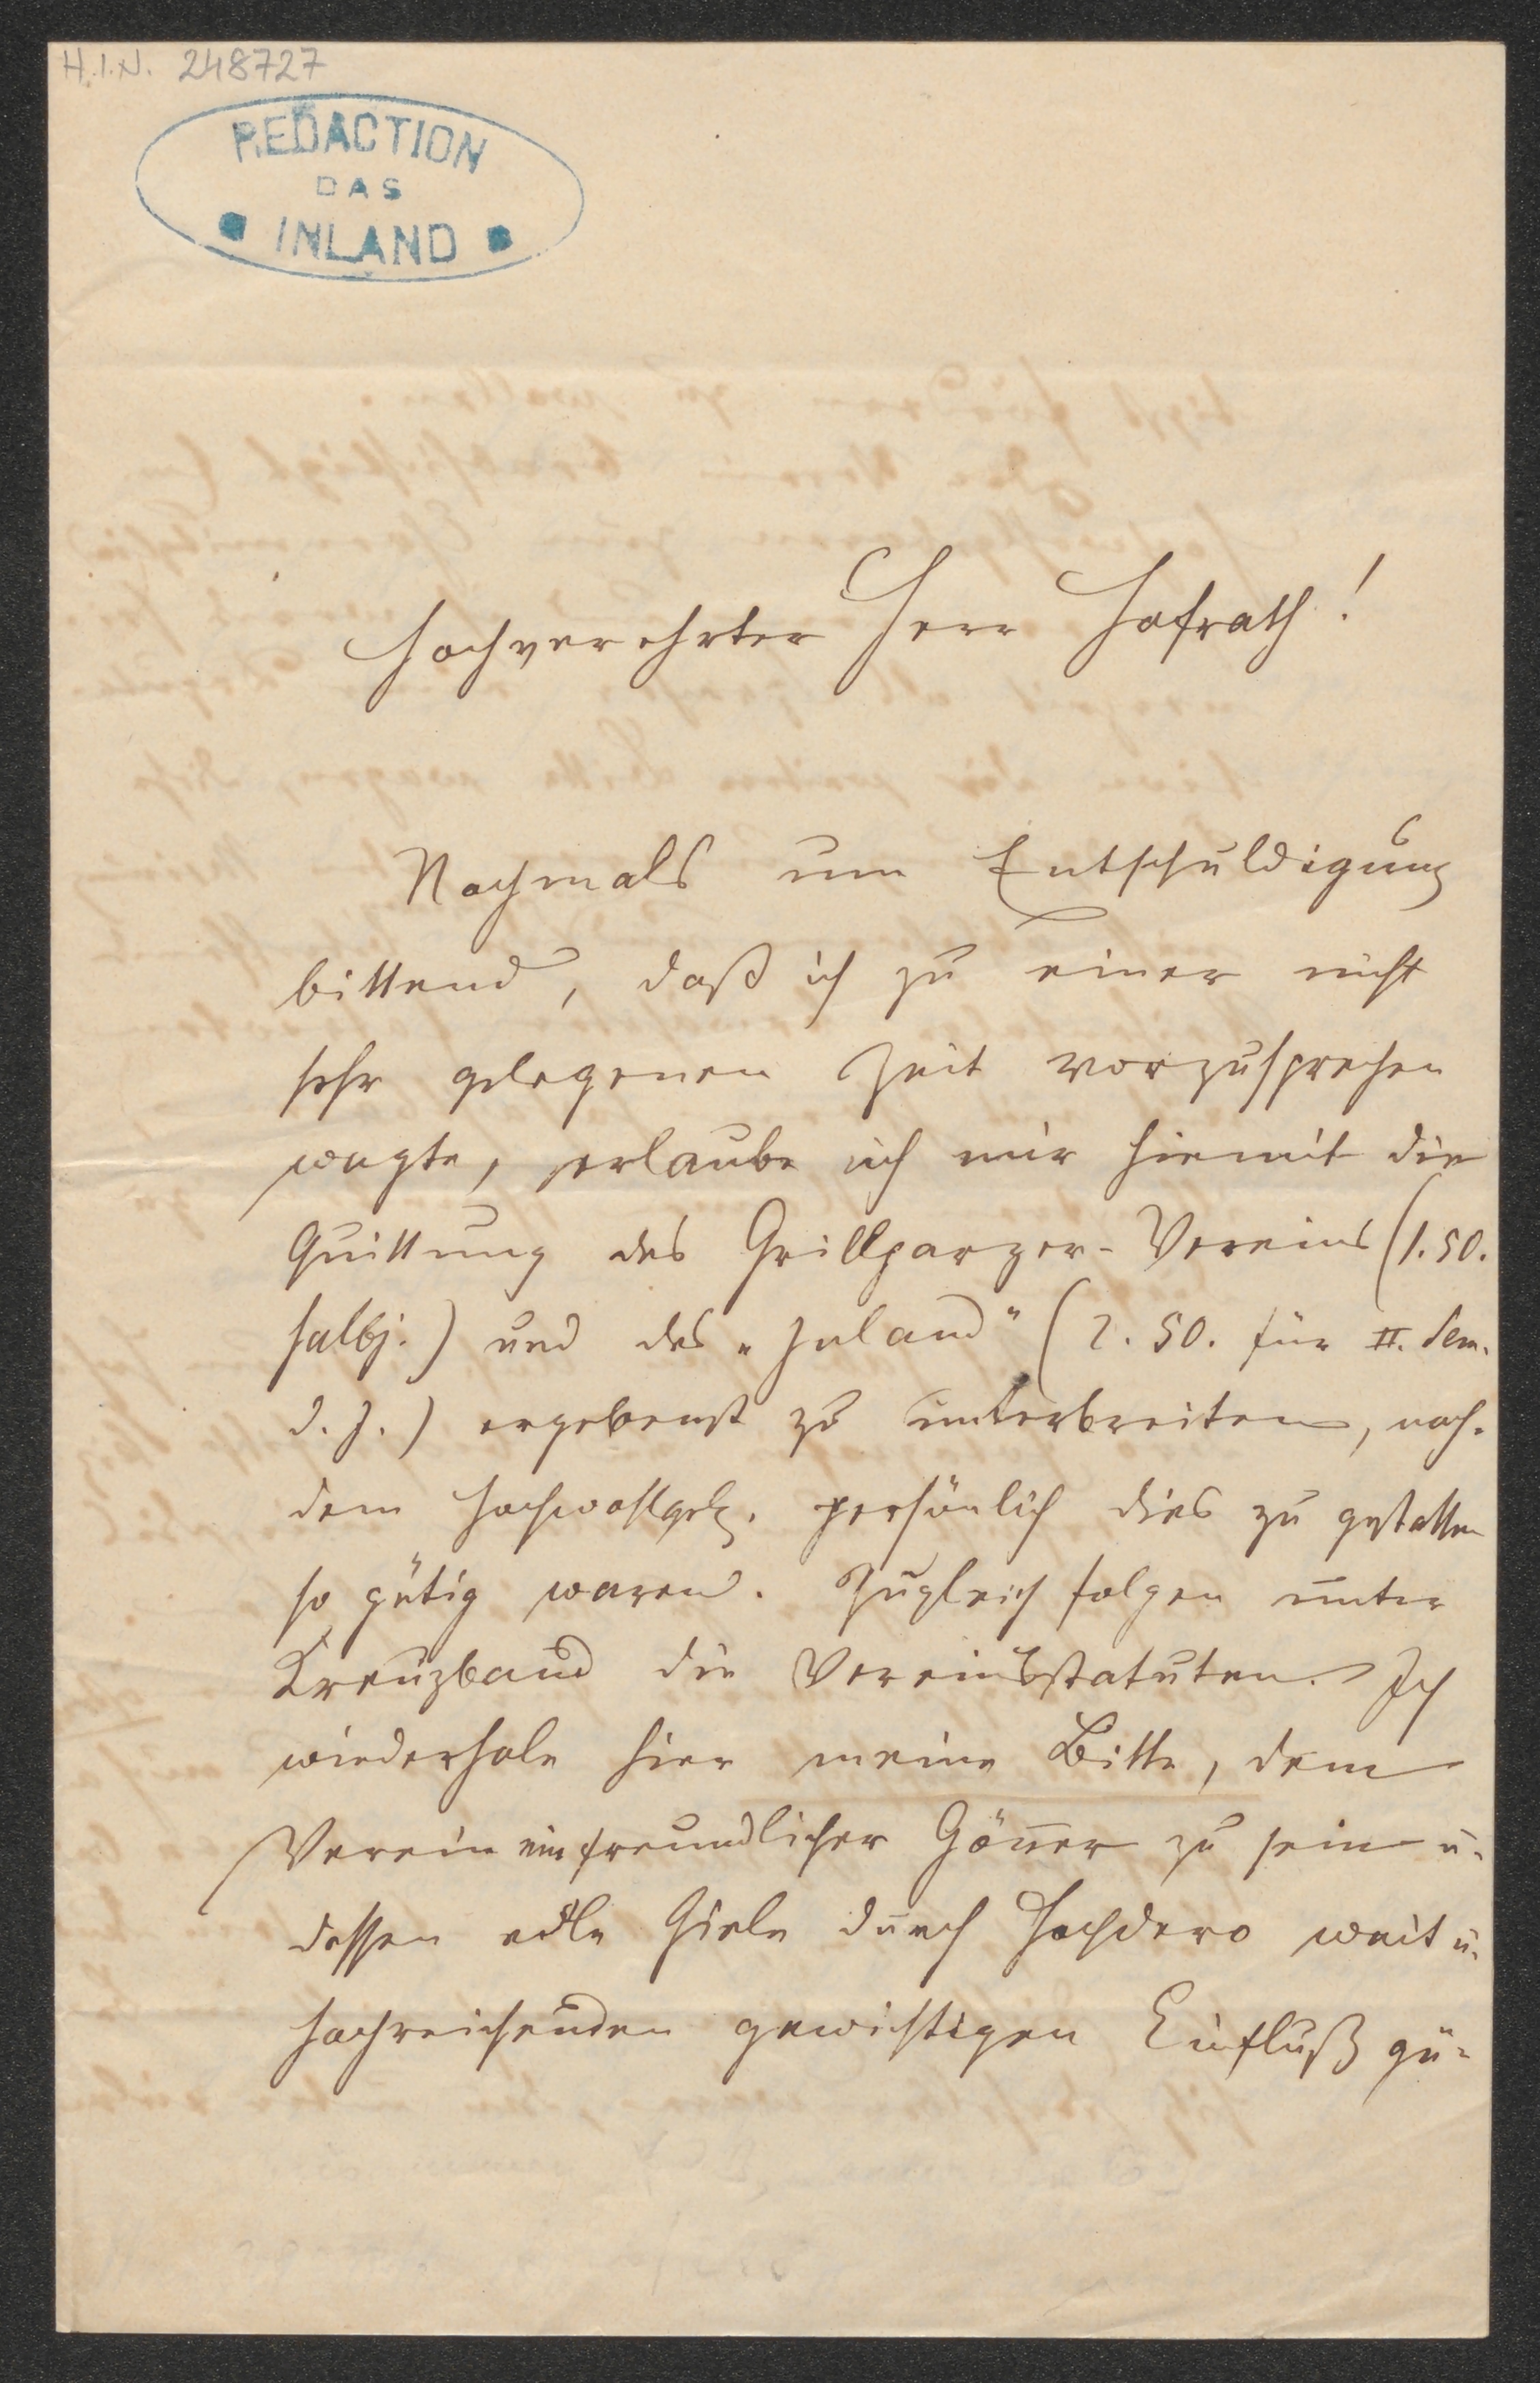 H.I.N. 248727
REDACTION
DAS
INLAND
Hochverehrter Herr Hofrath!
Nochmals um Entschuldigung
bittend, daß ich zu einer nicht
sehr gelegenen Zeit vorzusprechen
wagte, erlaube ich mir hiemit die
Quittung des Grillparzer-Vereins (1.50.
halbj.) und des „Inland" (2.50. für II. Sem.
d. J.) ergebenst zu unterbreiten, nach-
dem Hochwohlgeb. persönlich dies zu gestatten
so gütig waren. Zugleich folgen unter
Kreuzband die Vereinsstatuten. Ich
wiederhole hier meine Bitte, dem
Verein ein freundlicher Gön̄er zu sein u.
dessen edle Ziele durch Hochdero weit u.
hochreichenden gewichtigen Einfluß gü-